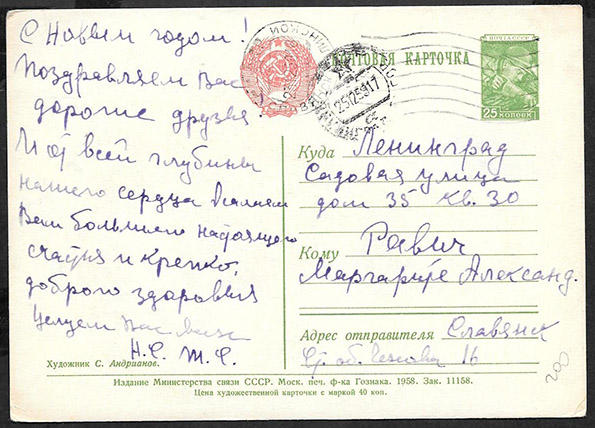 С Новым годом!
Поздравляем Вас
дорогие друзья
И от всей глубины
нашего сердца Желаем
Вам большого настоящего
счастья и крепко,
доброго здоровья
Целуем Вас всех
Н.С. Ж.С.
Художник С. Андрианов.
ПОЧТОВАЯ КАРТОЧКА
ПОЧТА СССР
25 КОПЕЕК
251259 17
Куда Ленинград
Садовая улица
дом 35 Кв. 30
Кому Равич
Маргарите Александ.
Адрес отправителя Славянск
16
200
Издание Министерства связи СССР. Моск. печ. ф-ка Гознака. 1958. Зак. 11158.
Цена художественной карточки с маркой 40 коп.